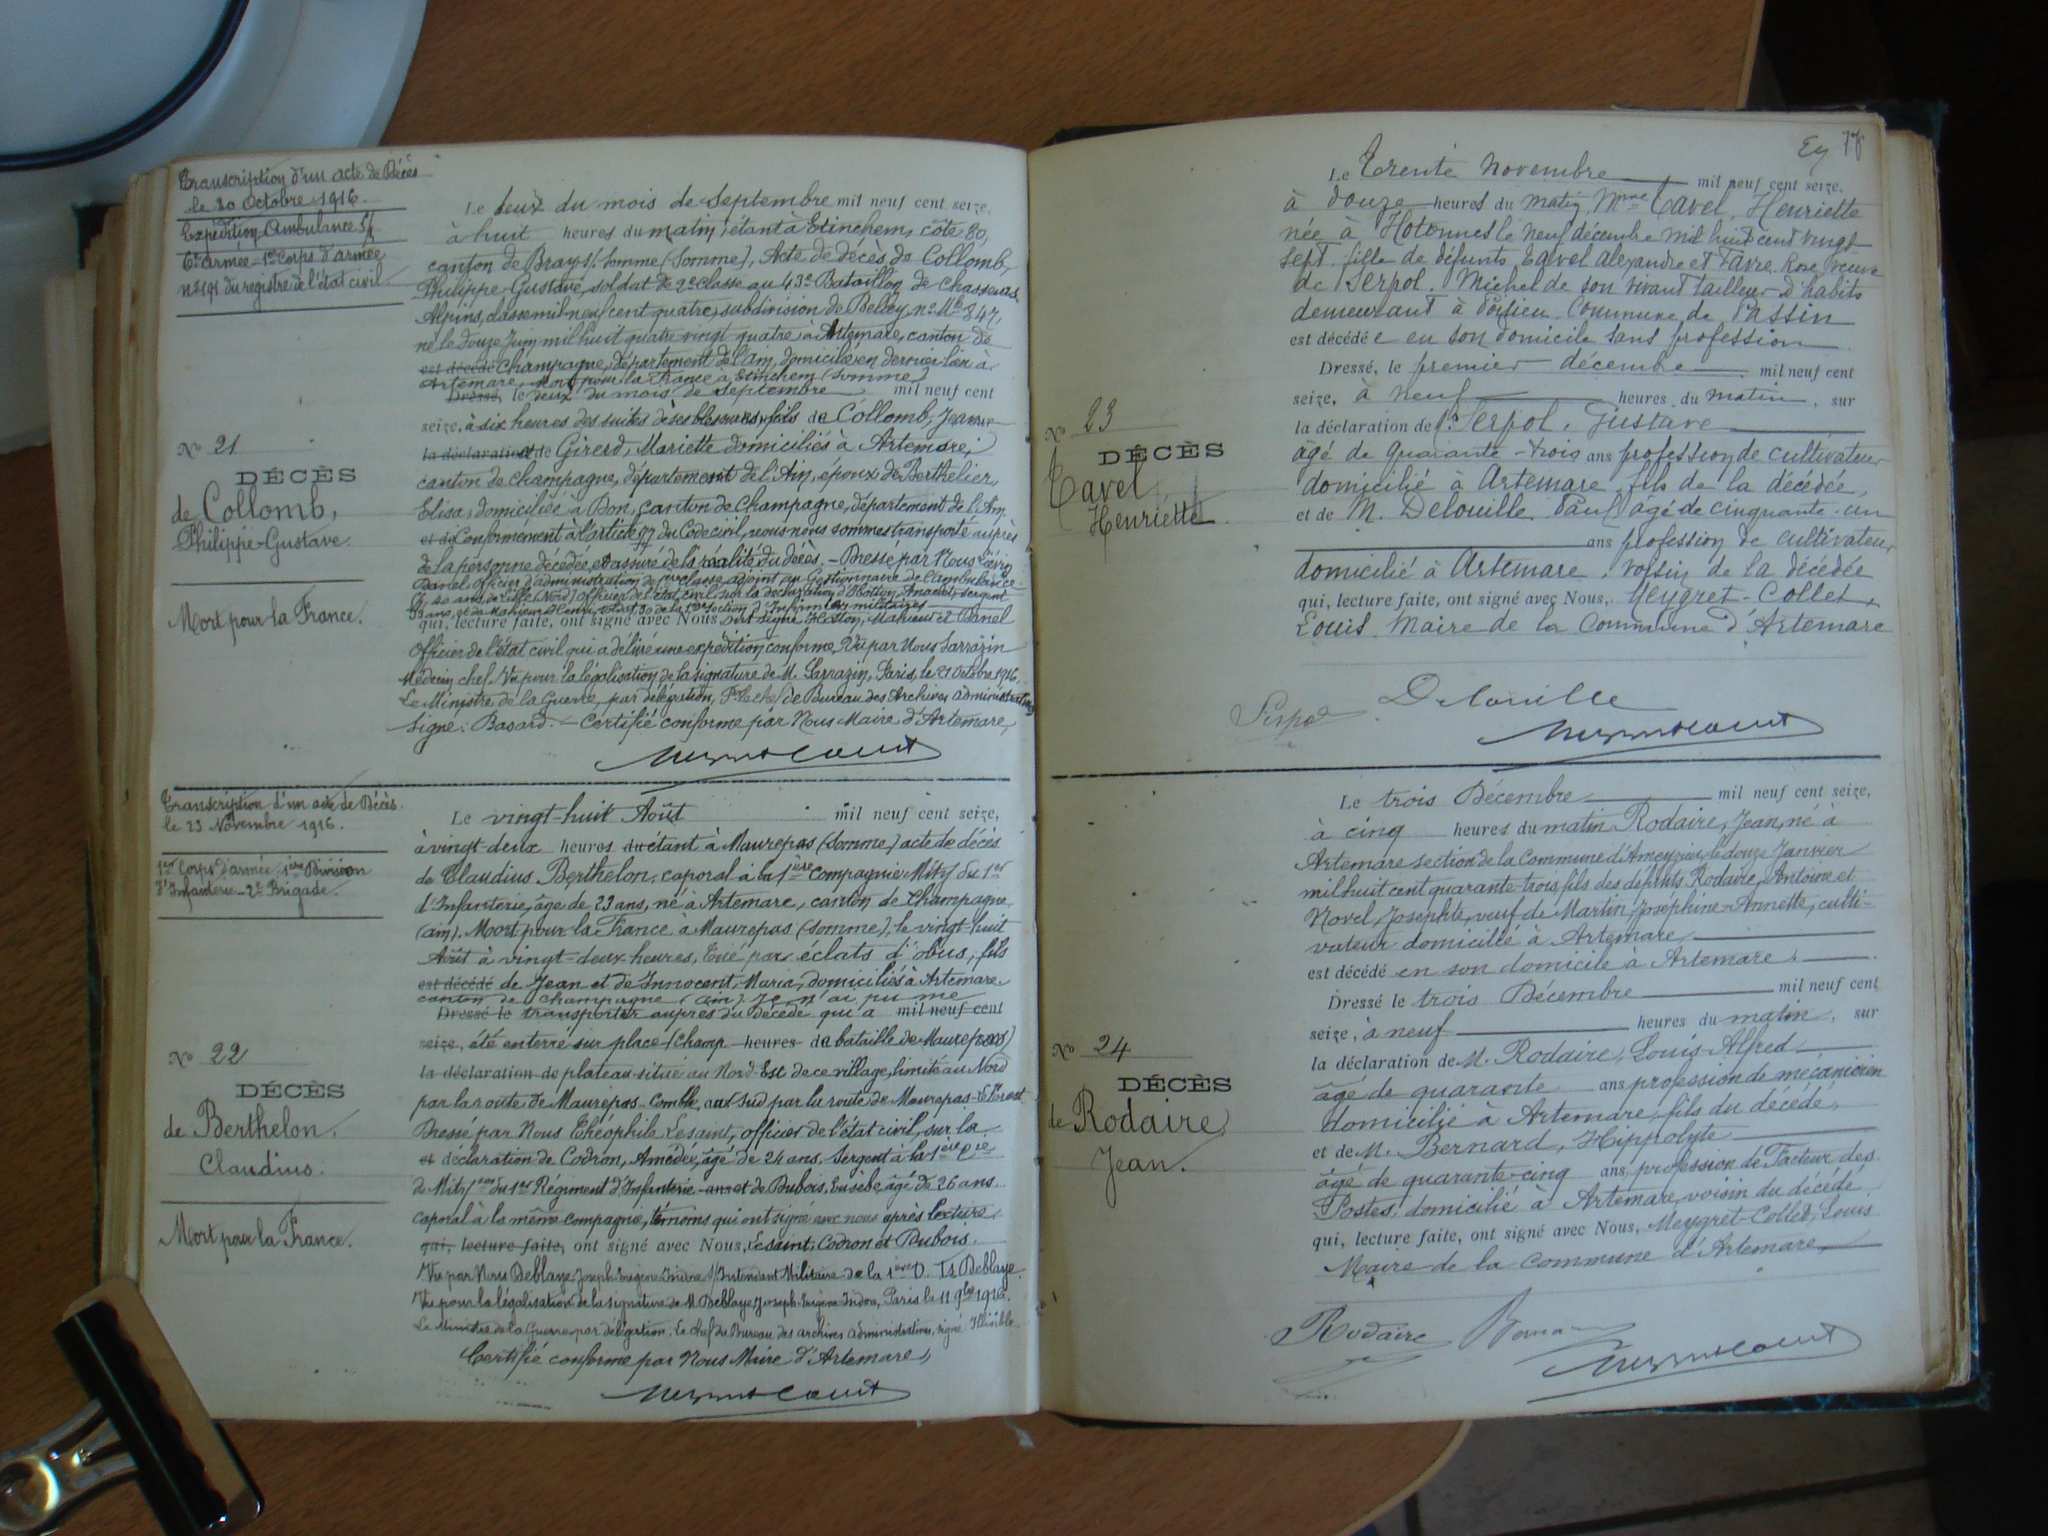 Transcription d'un acte de Décès
le 30 Octobre 1916.
Expédition Ambulance
6e armée - 1er Corps d'armée
n° 191 du registre de l'état civil.
N° 21
DÉCÈS
de Collomb,
Philippe-Gustave.
Mort pour la France.
Le deux du mois de Septembre mil neuf cent seize,
à huit heures du matin, étant à Etinehem, côte 80,
canton de Bray s/ Somme (Somme), Acte de décès de Collomb,
Philippe-Gustave, soldat de 2e classe au 43e Bataillon de Chasseurs
Alpins, classe mil neuf cent quatre, subdivision de Belley, n° Mle 347,
né le douze Juin mil huit quatre vingt quatre à Artemare, canton de
est décédé Champagne, département de l'Ain, domicilié en dernier lieu à
Artemare, Mort pour la France à Etinehem (Somme)
Dressé, le deux du mois de Septembre mil neuf cent
seize, à six heures des suites de ses blessures, fils de Collomb, Jean
la déclaration et de Girerd, Mariette domiciliés à Artemare,
canton de Champagne, département de l'Ain, époux de Berthelier,
Elisa, domiciliée à Don, canton de Champagne, département de l'Ain.
et de Conformément à l'article 77 du Code civil, nous nous sommes transporté auprès
de la personne décédée et assuré de la réalité du décès. - Dressé par Nous
Danel officier d'administration de classe adjoint au Gestionnaire de l'ambulance
ans, de Lille (Nord) officier de l'état civil, sur la déclaration d'Hoston, Anatole, sergent
ans, et de Mahieu Henri, soldat de la section d'Infirmiers militaires
qui, lecture faite, ont signé avec Nous Ont signé Hoston, Mahieu et Danel
Officier de l'état civil qui a délivré une expédition conforme. Vu par Nous Sarrazin
Médecin chef. Vu pour la légalisation de la signature de M. Sarrazin, Paris, le 21 Octobre 1916.
Le Ministre de la Guerre, par délégation, P. le chef de Bureau des Archives administratives
Signé: Basard. - Certifié conforme par Nous Maire d'Artemare,
Transcription d'un acte de Décès
le 23 Novembre 1916.
1er Corps d'armée - 1ère Division
d'Infanterie - 2e Brigade
N° 22
DÉCÈS
de Berthelon,
Claudius.
Mort pour la France.
Le vingt-huit Août mil neuf cent seize,
à vingt-deux heures du étant à Maurepas (Somme) acte de décès
de Claudius Berthelon, caporal à la 1ère compagnie Mitr du 1er
d'Infanterie, âgé de 23 ans, né à Artemare, canton de Champagne
(Ain). Mort pour la France à Maurepas (Somme), le vingt-huit
Août à vingt-deux heures, tué par éclats d'obus, fils
est décédé de Jean et de Innocent, Maria, domiciliés à Artemare
canton de Champagne (Ain) Je n'ai pu me
Dressé le transporter auprès du décédé qui a mil neuf cent
seize, été enterré sur place (Champ heures de bataille de Maurepas)
la déclaration de plateau situé au Nord-Est de ce village, limité au Nord
par la route de Maurepas-Combles, au Sud par la route de Maurepas-Le Forest
Dressé par Nous Théophile Lesaint, officier de l'état civil, sur la
et déclaration de Codron, Amédée, âgé de 24 ans, Sergent à la 1ère Cie
de Mitr du 1er Régiment d'Infanterie ans et de Dubois, Eusèbe, âgé de 26 ans
caporal à la même compagnie, témoins qui ont signé avec nous après lecture
qui, lecture faite, ont signé avec Nous, Lesaint, Codron et Dubois.
Vu par Nous Deblaye Joseph Eugène S/Intendant Militaire de la 1ère D. Deblaye
Vu pour la légalisation de la signature de M. Deblaye Joseph Eugène Paris le 11 9bre 1916.
Le Ministre de la Guerre par délégation. Le chef du Bureau des archives administratives, signé Illisible
Certifié conforme par Nous Maire d'Artemare,
78
Le Trente Novembre mil neuf cent seize,
à douze heures du matin, Mme Tavel, Henriette
née à Hotonnes le neuf décembre mil huit cent vingt
sept, fille de défunts Tavel Alexandre et Favre Rose veuve
de Serpol, Michel de son vivant tailleur d'habits
demeurant à Commune de Passin
est décédée en son domicile sans profession
Dressé, le premier décembre mil neuf cent
seize, à neuf heures du matin, sur
la déclaration de Serpol, Gustave
âgé de quarante-trois ans profession de cultivateur
domicilié à Artemare, fils de la décédée,
et de M. Delouille Paul âgé de cinquante-un
ans profession de cultivateur
domicilié à Artemare, voisin de la décédée
qui, lecture faite, ont signé avec Nous, Meygret-Collet,
Louis Maire de la Commune d'Artemare
N° 23
DÉCÈS
Tavel
Henriette
Serpol
Delouille
Le trois Décembre mil neuf cent seize,
à cinq heures du matin Rodaire, Jean, né à
Artemare section de la Commune d'Ameyzieu, le douze Janvier
mil huit cent quarante trois fils des défunts Rodaire, Antoine et
Novel, Josephte, veuf de Martin, Joséphine-Annette, culti-
vateur domicilié à Artemare
est décédé en son domicile à Artemare.
Dressé le trois Décembre mil neuf cent
seize, à neuf heures du matin, sur
la déclaration de M. Rodaire, Louis Alfred
âgé de quarante ans profession de mécanicien
domicilié à Artemare, fils du décédé,
et de M. Bernard, Hippolyte
âgé de quarante-cinq ans, profession de Facteur des
Postes, domicilié à Artemare, voisin du décédé
qui, lecture faite, ont signé avec Nous, Meygret-Collet, Louis
Maire de la Commune d'Artemare,
N° 24
DÉCÈS
de Rodaire
Jean.
Rodaire